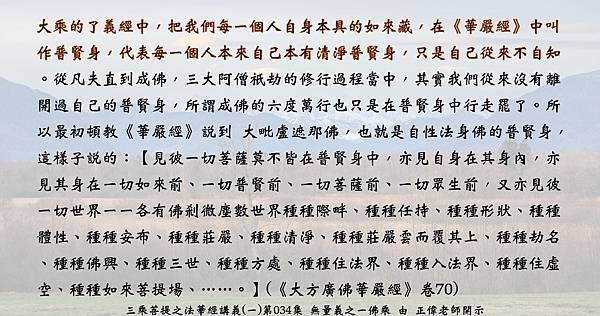 大乘的了義經中，把我們每一個人自身本具的如來藏，在《華嚴經》中叫
作普賢身，代表每一個人本來自己本有清淨普賢身，只是自己從來不自知
。從凡夫直到成佛，三大阿僧祇劫的修行過程當中，其實我們從來沒有離
開過自己的普賢身，所謂成佛的六度萬行也只是在普賢身中行走罷了。所
以最初頓教《華嚴經》說到 大毗盧遮那佛，也就是自性法身佛的普賢身，
這樣子說的：【見彼一切菩薩莫不皆在普賢身中，亦見自身在其身內，亦
見其身在一切如來前、一切普賢前、一切菩薩前、一切眾生前，又亦見彼
一切世界一一各有佛剎微塵數世界種種際畔、種種任持、種種形狀、種種
體性、種種安布、種種莊嚴、種種清淨、種種莊嚴雲而覆其上、種種劫名
、種種佛興、種種三世、種種方處、種種住法界、種種入法界、種種住虛
空、種種如來菩提場、……。】(《大方廣佛華嚴經》卷70)
三乘菩提之法華經講義(一)第034集 無量義之一佛乘 由 正偉老師開示